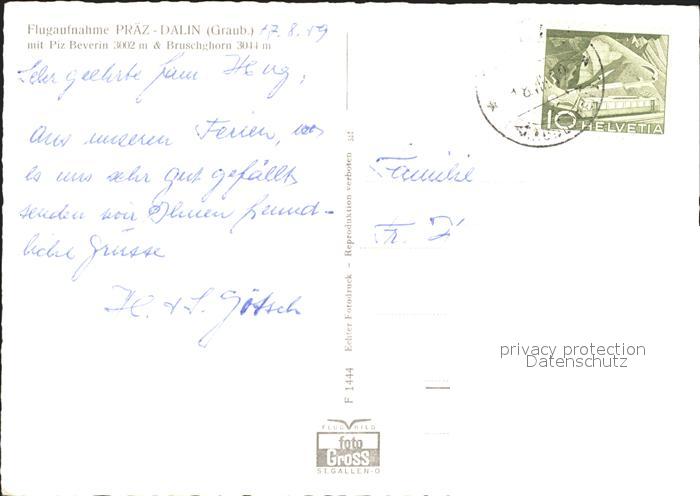 Flugaufnahme PRÄZ - DALIN (Graub.) 17.8.59
mit Piz Beverin 3002 m & Bruschghorn 3044 m
Sehr geehrte Fam Hug,
Aus unseren Ferien, wo
es uns sehr gut gefällt
senden wir Ihnen freund-
liche Grüsse
H. & S. Götsch
Familie
Fr.
10 HELVETIA
F 1444 Echter Fotodruck - Reproduktion verboten
privacy protection
Datenschutz
FLUGBILD
foto
Gross
ST.GALLEN-O